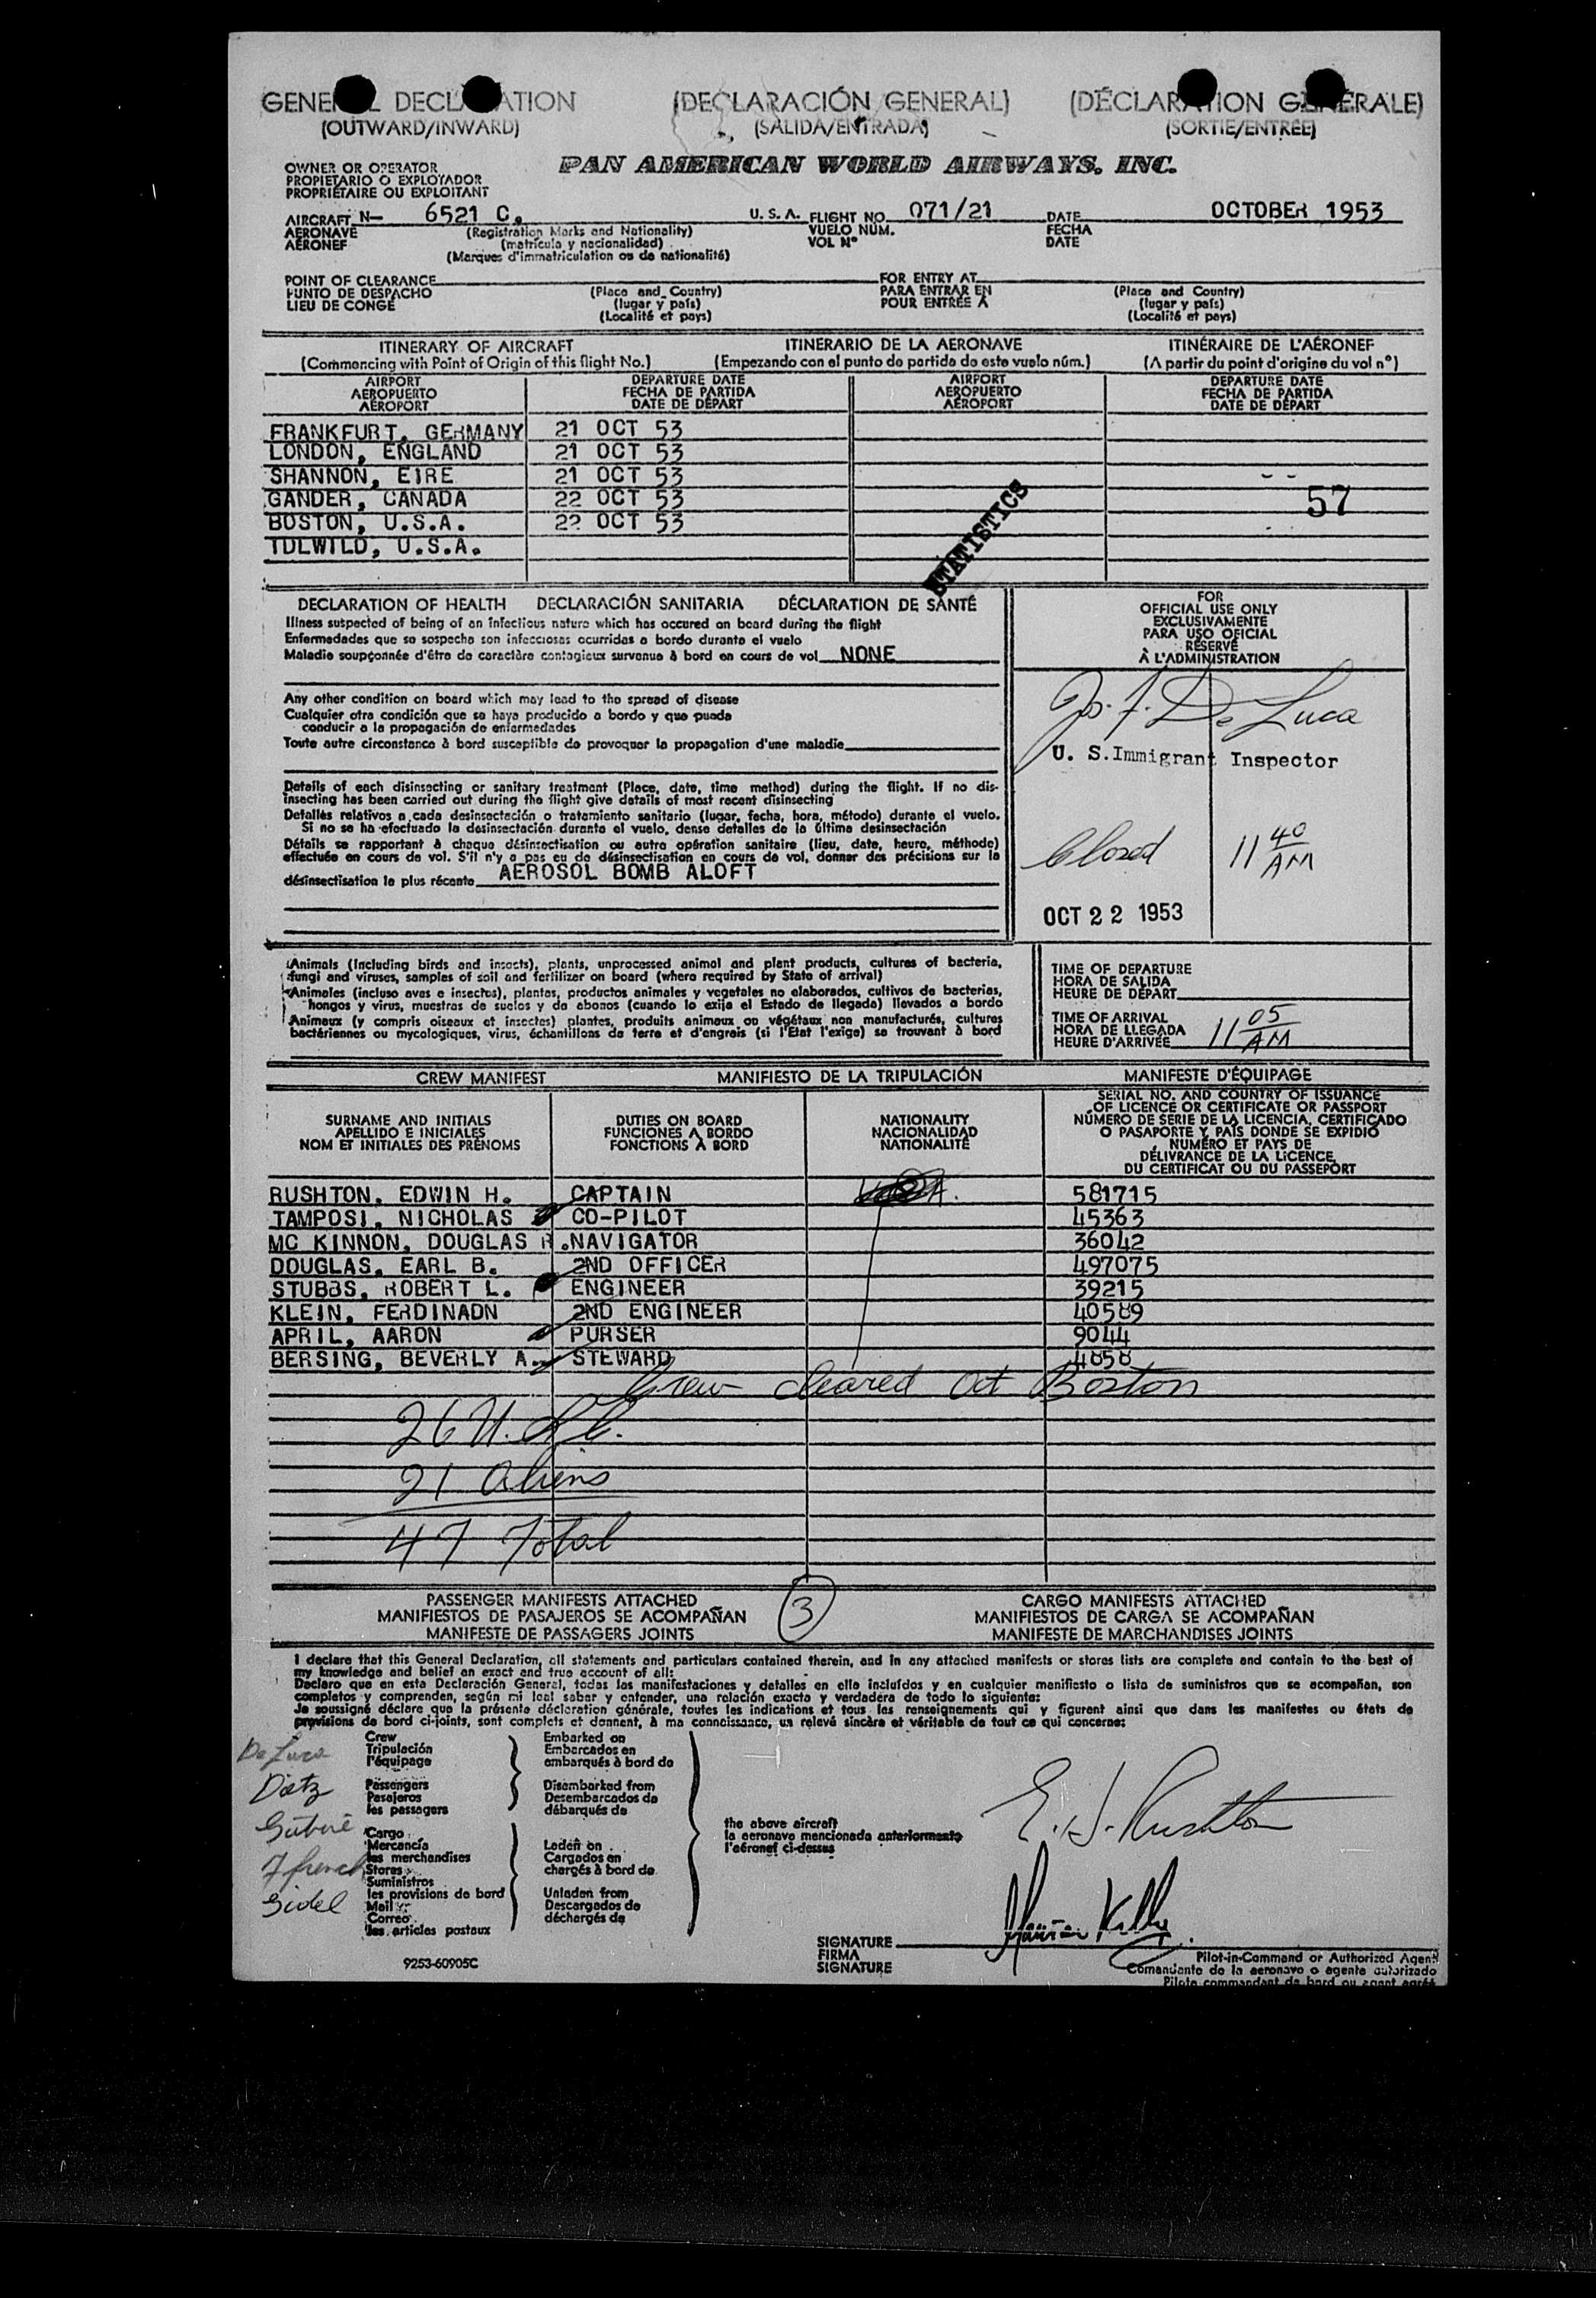 GENERAL DECLARATION (DECLARACIÓN GENERAL) (DÉCLARATION GÉNÉRALE)
(OUTWARD/INWARD) (SALIDA/ENTRADA) (SORTIE/ENTRÉE)
OWNER OR OPERATOR
PROPIETARIO O EXPLOTADOR
PROPRIÉTAIRE OU EXPLOITANT
PAN AMERICAN WORLD AIRWAYS, INC.
AIRCRAFT N- 6521 C. U. S. A. FLIGHT NO. 071/21 DATE OCTOBER 1953
AERONAVE (Registration Marks and Nationality) VUELO NÚM. FECHA
AÉRONEF (matrícula y nacionalidad) VOL Nº DATE
(Marques d'immatriculation ou de nationalité)
POINT OF CLEARANCE FOR ENTRY AT
PUNTO DE DESPACHO (Place and Country) PARA ENTRAR EN (Place and Country)
LIEU DE CONGÉ (lugar y país) POUR ENTRÉE À (lugar y país)
(Localité et pays) (Localité et pays)
ITINERARY OF AIRCRAFT ITINERARIO DE LA AERONAVE ITINÉRAIRE DE L'AÉRONEF
(Commencing with Point of Origin of this flight No.) (Empezando con el punto de partida de este vuelo núm.) (A partir du point d'origine du vol nº)
AIRPORT DEPARTURE DATE AIRPORT DEPARTURE DATE
AEROPUERTO FECHA DE PARTIDA AEROPUERTO FECHA DE PARTIDA
AÉROPORT DATE DE DÉPART AÉROPORT DATE DE DÉPART
FRANKFURT, GERMANY 21 OCT 53
LONDON, ENGLAND 21 OCT 53
SHANNON, EIRE 21 OCT 53
GANDER, CANADA 22 OCT 53 57
BOSTON, U.S.A. 22 OCT 53
IDLWILD, U.S.A.
STATISTICS
DECLARATION OF HEALTH DECLARACIÓN SANITARIA DÉCLARATION DE SANTÉ
Illness suspected of being of an infectious nature which has occured on board during the flight
Enfermedades que se sospecha son infecciosas ocurridas a bordo durante el vuelo
Maladie soupçonnée d'être de caractère contagieux survenue à bord en cours de vol NONE
Any other condition on board which may lead to the spread of disease
Cualquier otra condición que se haya producido a bordo y que pueda
conducir a la propagación de enfermedades
Toute autre circonstance à bord susceptible de provoquer la propagation d'une maladie
Details of each disinsecting or sanitary treatment (Place, date, time method) during the flight. If no dis-
insecting has been carried out during the flight give details of most recent disinsecting
Detalles relativos a cada desinsectación o tratamiento sanitario (lugar, fecha, hora, método) durante el vuelo.
Si no se ha efectuado la desinsectación durante el vuelo, dense detalles de la última desinsectación
Détails se rapportant à chaque désinsectisation ou autre opération sanitaire (lieu, date, heure, méthode)
effectuée en cours de vol. S'il n'y a pas eu de désinsectisation en cours de vol, donner des précisions sur la
désinsectisation la plus récente AEROSOL BOMB ALOFT
FOR
OFFICIAL USE ONLY
EXCLUSIVAMENTE
PARA USO OFICIAL
RÉSERVÉ
À L'ADMINISTRATION
Jos. F. De Luca
U. S. Immigrant Inspector
Closed 11 40 AM
OCT 22 1953
Animals (Including birds and insects), plants, unprocessed animal and plant products, cultures of bacteria,
fungi and viruses, samples of soil and fertilizer on board (where required by State of arrival)
Animales (incluso aves e insectos), plantas, productos animales y vegetales no elaborados, cultivos de bacterias,
hongos y virus, muestras de suelos y de abonos (cuando lo exija el Estado de llegada) llevados a bordo
Animaux (y compris oiseaux et insectes) plantes, produits animaux ou végétaux non manufacturés, cultures
bactériennes ou mycologiques, virus, échantillons de terre et d'engrais (si l'Etat l'exige) se trouvant à bord
TIME OF DEPARTURE
HORA DE SALIDA
HEURE DE DÉPART
TIME OF ARRIVAL
HORA DE LLEGADA
HEURE D'ARRIVÉE 11 05 AM
CREW MANIFEST MANIFIESTO DE LA TRIPULACIÓN MANIFESTE D'ÉQUIPAGE
SURNAME AND INITIALS
APELLIDO E INICIALES
NOM ET INITIALES DES PRÉNOMS
DUTIES ON BOARD
FUNCIONES A BORDO
FONCTIONS À BORD
NATIONALITY
NACIONALIDAD
NATIONALITÉ
SERIAL NO. AND COUNTRY OF ISSUANCE
OF LICENCE OR CERTIFICATE OR PASSPORT
NÚMERO DE SERIE DE LA LICENCIA, CERTIFICADO
O PASAPORTE Y PAÍS DONDE SE EXPIDIÓ
NUMÉRO ET PAYS DE
DÉLIVRANCE DE LA LICENCE,
DU CERTIFICAT OU DU PASSEPORT
RUSHTON, EDWIN H. CAPTAIN 581715
TAMPOSI, NICHOLAS CO-PILOT 45363
MC KINNON, DOUGLAS R. NAVIGATOR 36042
DOUGLAS, EARL B. 2ND OFFICER 497075
STUBBS, ROBERT L. ENGINEER 39215
KLEIN, FERDINADN 2ND ENGINEER 40589
APRIL, AARON PURSER 9044
BERSING, BEVERLY A. STEWARD 4858
Crew cleared at Boston
26 U.S.C.
21 Aliens
47 Total
PASSENGER MANIFESTS ATTACHED 3 CARGO MANIFESTS ATTACHED
MANIFIESTOS DE PASAJEROS SE ACOMPAÑAN MANIFIESTOS DE CARGA SE ACOMPAÑAN
MANIFESTE DE PASSAGERS JOINTS MANIFESTE DE MARCHANDISES JOINTS
I declare that this General Declaration, all statements and particulars contained therein, and in any attached manifests or stores lists are complete and contain to the best of
my knowledge and belief an exact and true account of all:
Declaro que en esta Declaración General, todas las manifestaciones y detalles en ella incluídos y en cualquier manifiesto o lista de suministros que se acompañan, son
completos y comprenden, según mi leal saber y entender, una relación exacta y verdadera de todo lo siguiente:
Je soussigné déclare que la présente déclaration générale, toutes les indications et tous les renseignements qui y figurent ainsi que dans les manifestes ou états de
provisions de bord ci-joints, sont complets et donnent, à ma connaissance, un relevé sincère et véritable de tout ce qui concerne:
De Luca
Dietz
French
Sidel
Crew Embarked on
Tripulación Embarcados en
l'équipage embarqués à bord de
Passengers Disembarked from
Pasajeros Desembarcados de
les passagers débarqués de
Cargo
Mercancía Laden on
les merchandises Cargados en
Stores chargés à bord de
Suministros
les provisions de bord Unladen from
Mail Descargados de
Correo déchargés de
les articles postaux
the above aircraft
la aeronave mencionada anteriormente
l'aéronef ci-dessus
E. H. Rushton
Kelly
SIGNATURE
FIRMA
SIGNATURE
Pilot-in-Command or Authorized Agent
Comandante de la aeronave o agente autorizado
Pilote commandant de bord ou agent agréé
9253-60905C